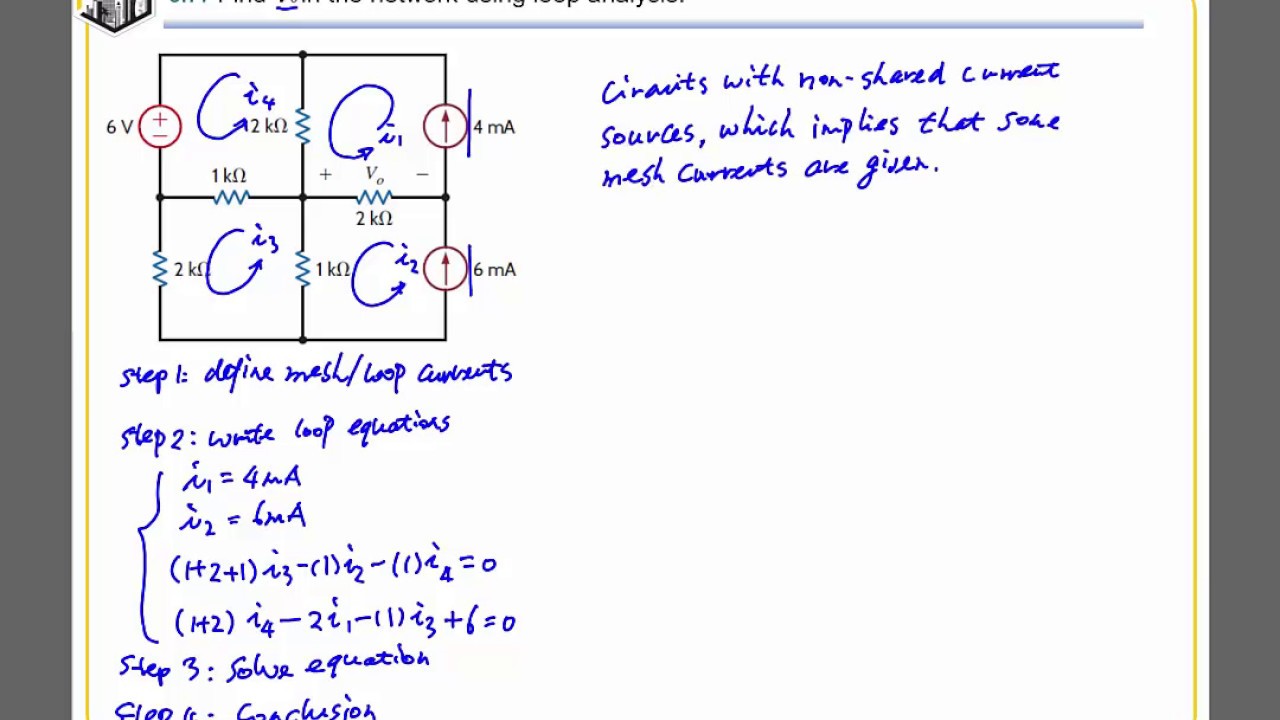 Find V₀ in the network using loop analysis.
Circuits with non-shared current
sources, which implies that some
mesh currents are given.
i₄
i₁
6 V
+
−
2 kΩ
4 mA
1 kΩ
+ Vₒ −
2 kΩ
i₃
i₂
2 kΩ
1 kΩ
6 mA
Step 1: define mesh/loop currents
Step 2: write loop equations
i₁ = 4mA
i₂ = 6mA
(1+2+1) i₃ - (1) i₂ - (1) i₄ = 0
(1+2) i₄ - 2 i₁ - (1) i₃ + 6 = 0
Step 3: Solve equation
Step 4: Conclusion